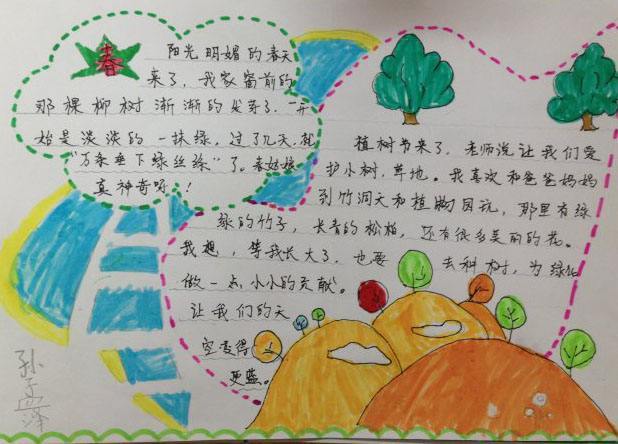 春
阳光明媚的春天
来了，我家窗前的
那棵柳树渐渐的发芽了，一开
始是淡淡的一抹绿，过了几天，就
“万条垂下绿丝绦”了。春姑娘
真神奇呀！
植树节来了，老师说让我们爱
护小树，草地。我喜欢和爸爸妈妈
到竹洞天和植物园玩，那里有绿
绿的竹子，长青的松柏，还有很多美丽的花。
我想，等我长大了，也要去种树，为绿化
做一点小小的贡献。
让我们的天
空变得
更蓝。
孙孟泽